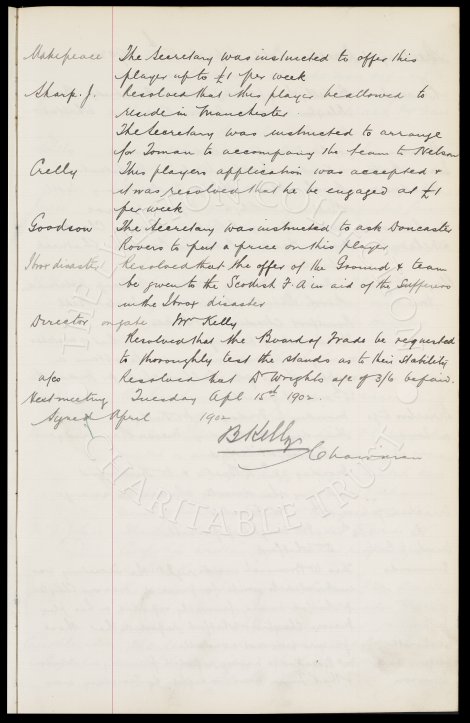 Makepeace The Secretary was instructed to offer this
player up to £1 per week
Sharp. J. Resolved that this player be allowed to
reside in Manchester.
The Secretary was instructed to arrange
for Toman to accompany the team to Nelson
Crelly This players application was accepted &
it was resolved that he be engaged at £1
per week
Goodson The Secretary was instructed to ask Doncaster
Rovers to put a price on this player
Ibrox disaster Resolved that the offer of the Ground & team
be given to the Scottish F.A in aid of the Sufferers
in the Ibrox disaster
Director on gate Mr Kelly
Resolved that the Board of Trade be requested
to thoroughly test the stands as to their Stability
a/cs Resolved that Dr Wrights a/c of 3/6 be paid.
Next meeting Tuesday Apl 15th 1902.
Signed April 1902
B Kelly
Chairman
THE EVERTON COLLECTION
CHARITABLE TRUST